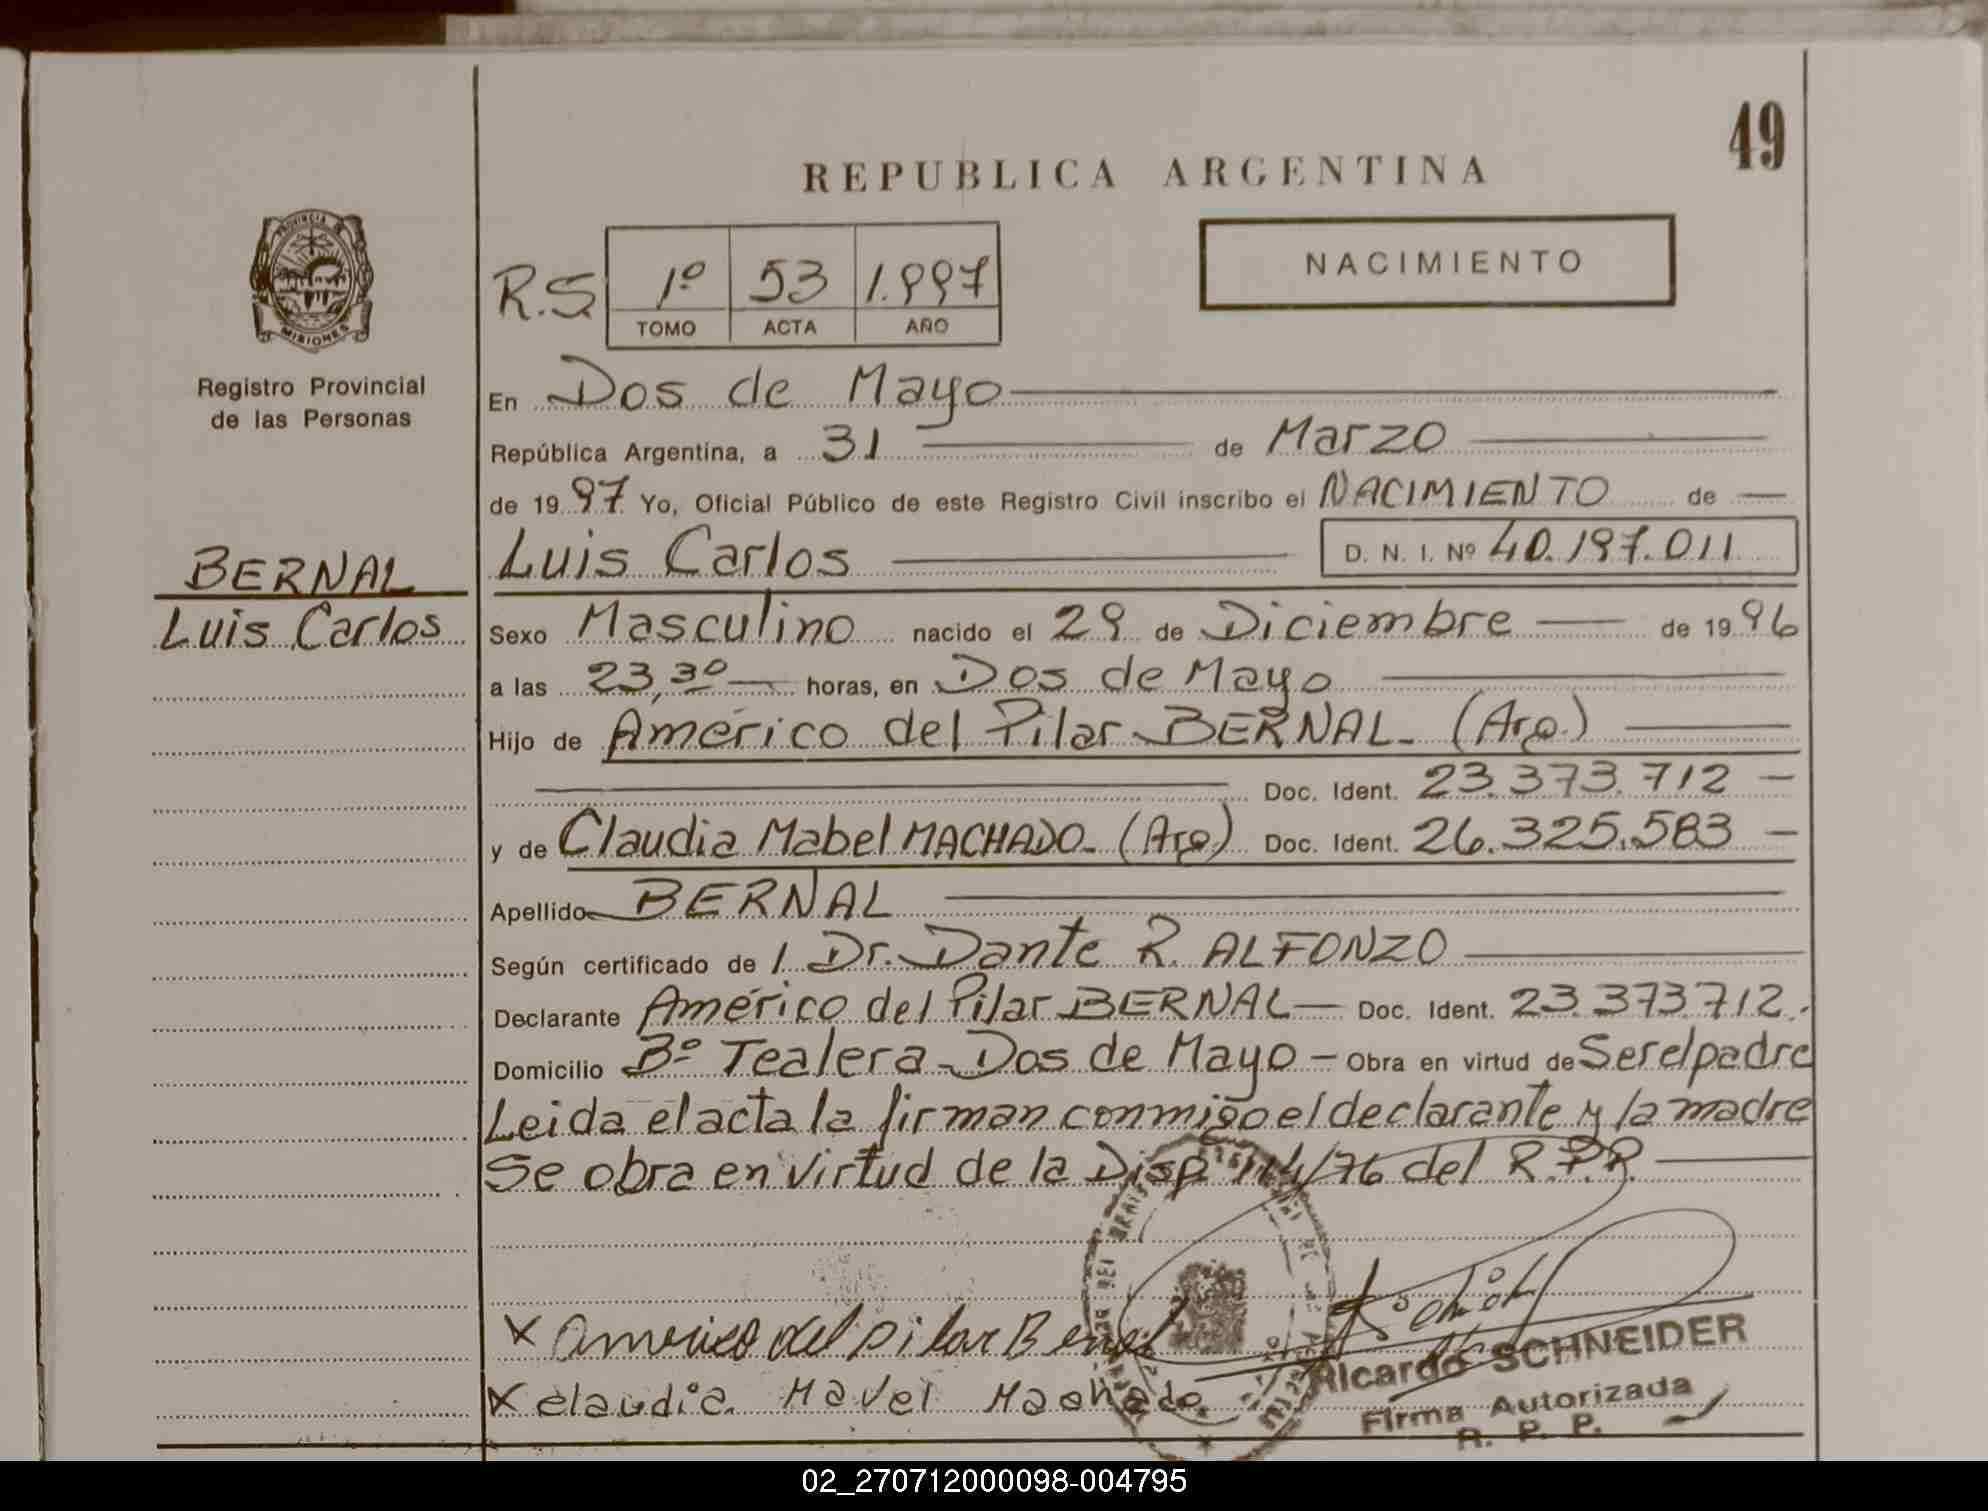 49
REPUBLICA ARGENTINA
PROVINCIA DE
MISIONES
Registro Provincial
de las Personas
R.S. 1º 53 1.997
TOMO ACTA AÑO
NACIMIENTO
En Dos de Mayo
República Argentina, a 31 de Marzo
de 19 97 Yo, Oficial Público de este Registro Civil inscribo el NACIMIENTO de
BERNAL
Luis Carlos
Luis Carlos D. N. I. Nº 40.197.011
Sexo Masculino nacido el 29 de Diciembre de 19 96
a las 23,30 horas, en Dos de Mayo
Hijo de Américo del Pilar BERNAL (Arg.)
Doc. Ident. 23.373.712
y de Claudia Mabel MACHADO (Arg) Doc. Ident. 26.325.583
Apellido BERNAL
Según certificado de l Dr. Dante R. ALFONZO
Declarante Américo del Pilar BERNAL Doc. Ident. 23.373.712.
Domicilio Bº Tealera Dos de Mayo - Obra en virtud de Ser el padre
Leida el acta la firman conmigo el declarante y la madre
Se obra en virtud de la Disp 114/76 del R.P.P.
X Americo del pilar Bernal
X claudia Mavel Machado
Ricardo SCHNEIDER
Firma Autorizada
R. P. P.
02_270712000098-004795